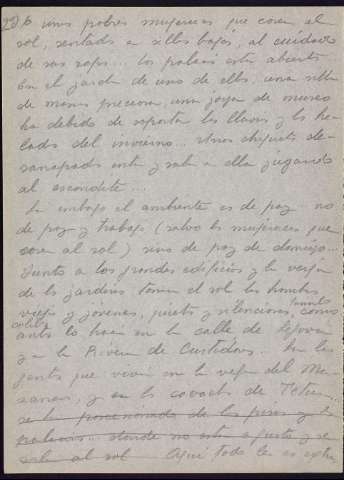 226 unas pobres mujerucas que cosen al
sol, sentadas en sillas bajas, al cuidado
de sus ropas... Los palacios están abiertos
En el jardín de uno de ellos, una silla
de manos preciosa, una joya de museo
ha debido de soportar las lluvias y las he-
ladas del invierno... Unos chiquillos de-
sarrapados entran y salen a ella jugando
al escondite...
Sin embargo el ambiente es de paz no
de paz y trabajo (salvo las mujerucas que
cosen al sol) sino de paz de domingo...
Junto a los grandes edificios y la verja
de los jardines toman el sol los hombres
viejos y jóvenes, quietos y silenciosos, como
antes lo hacían en la calle de
y en la Rivera de Curtidores... Son las
gentes que vivían en la vega del Man-
zanares, y en las covachas de Tetuán
de los pisos y los
palacios... donde no están a gusto y se
salen al sol Aquí todo les es